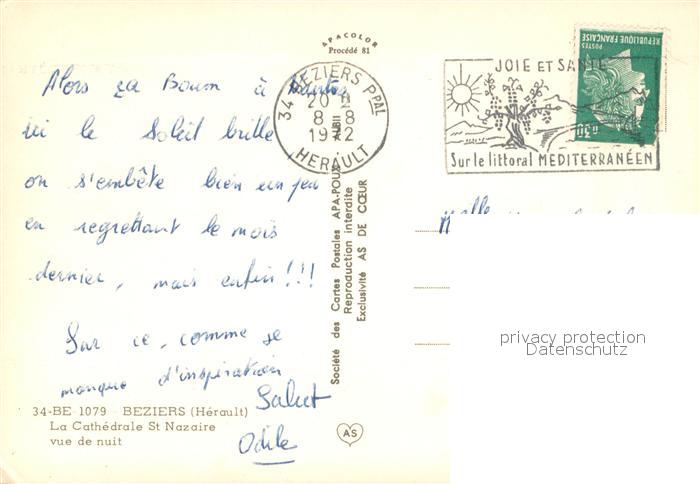 APACOLOR
Procédé 81
Alors ça Boum à Nantes
ici le Soleil brille
on s'embête bien un peu
en regrettant le mois
dernier, mais enfin !!!
Sur ce, comme je
manque d'inspiration
Salut
Odile
34-BE 1079 BEZIERS (Hérault)
La Cathédrale St Nazaire
vue de nuit
34 BEZIERS PPAL
20 H
8 - 8
1972
HERAULT
Société des Cartes Postales APA-POUX
Reproduction interdite
Exclusivité AS DE CŒUR
AS
JOIE ET SANTE
Sur le littoral MEDITERRANÉEN
POSTES
REPUBLIQUE FRANÇAISE
0,30
Mlle
privacy protection
Datenschutz